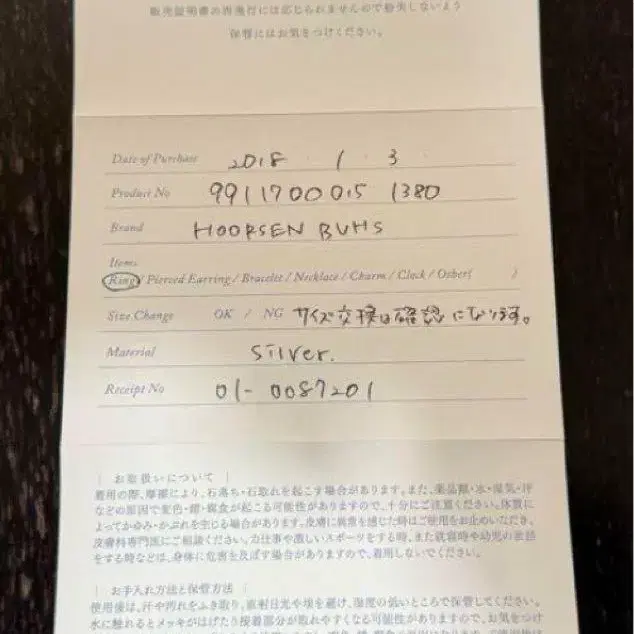 販売証明書の再発行には応じられませんので紛失しないよう
保管にはお気をつけください。
Date of Purchase 2018 1 3
Product No 9911700015 1380
Brand HOORSEN BUHS
Items
Ring / Pierced Earring / Bracelet / Necklace / Charm / Clock / Other( )
Size Change OK / NG サイズ交換は確認になります。
Material Silver.
Receipt No 01-0087201
| お取扱いについて |
着用の際、摩擦により、石落ち・石取れを起こす場合があります。また、薬品類・水・湿気・汗
などの原因で変色・錆・腐食が起こる可能性がありますので、十分にご注意ください。体質に
よってかゆみ・かぶれを生じる場合があります。皮膚に異常を感じた時はご使用をお止めいただき、
皮膚科専門医にご相談ください。力仕事や激しいスポーツをする時、また就寝時や幼児の世話
をする時などは、身体に危害を及ぼす場合がありますので、着用しないでください。
| お手入れ方法と保管方法 |
使用後は、汗や汚れをふき取り、直射日光や埃を避け、湿度の低いところで保管してください。
水に触れるとメッキがはげたり接着部分が取れやすくなる可能性がありますので、お気をつけ